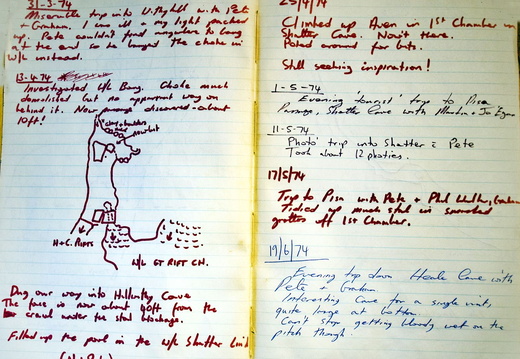 31-3-74
Miserable trip into Withyhill with Pete
+ Graham. I was ill + my light packed
up. Pete couldn't find anywhere to bang
at the end so he banged the choke in
W/L instead.
13-4-74
Investigated W/L Bang. Choke much
demolished but no apparent way on
behind it. New passage discovered - about
10ft!
clay + boulders
New bit
H+C. Pots
W/L GT RIFT CH.
Dug our way into Hillier Cave
The face is now about 40ft from the
crawl under the stal blockage.
Filled up the pool in the W/L Shatter
25/4/74
Climbed up Aven in 1st Chamber in
Shatter Cave. Nowt there.
Poked around for bits.
Still seeking inspiration!
1-5-74
Evening 'tourist' trip to Pisa
Passage, Shatter Cave with Martin + Jo
11-5-74
'Photo' trip into Shatter c̄ Pete
Took about 12 photies.
17/5/74
Trip to Pisa with Pete + Phil Graham
Tidied up much stal in smashed
grottos off 1st Chamber.
19/6/74
Evening trip down Heale Cave with
Pete + Graham
Interesting Cave for a single visit,
quite large at bottom.
Can't stop getting bloody wet on the
pitch though.